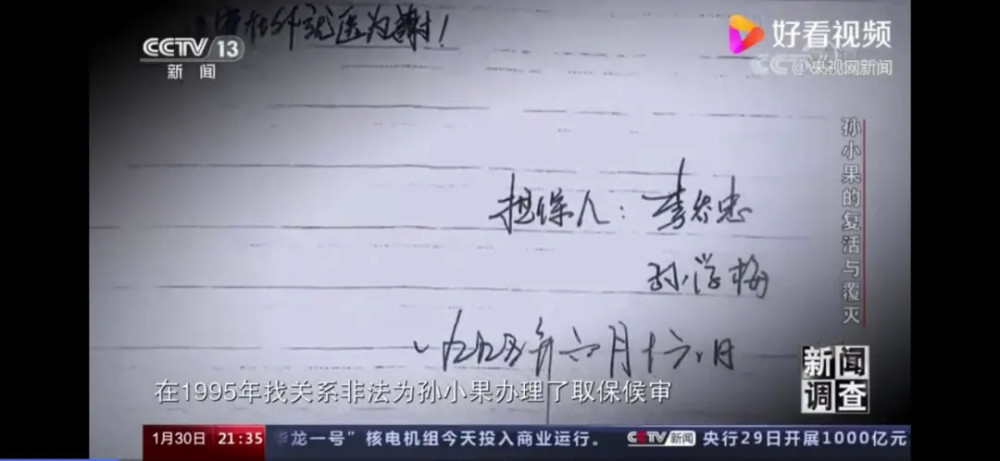 CCTV 13
新闻
好看视频
@央视网新闻
外就医为谢!
孙小果的复活与覆灭
担保人: 李谷忠
孙学梅
一九九五年六月十六日
在1995年找关系非法为孙小果办理了取保候审
新闻
调查
1月30日 21:35 华龙一号”核电机组今天投入商业运行。 CCTV新闻 央行29日开展1000亿元